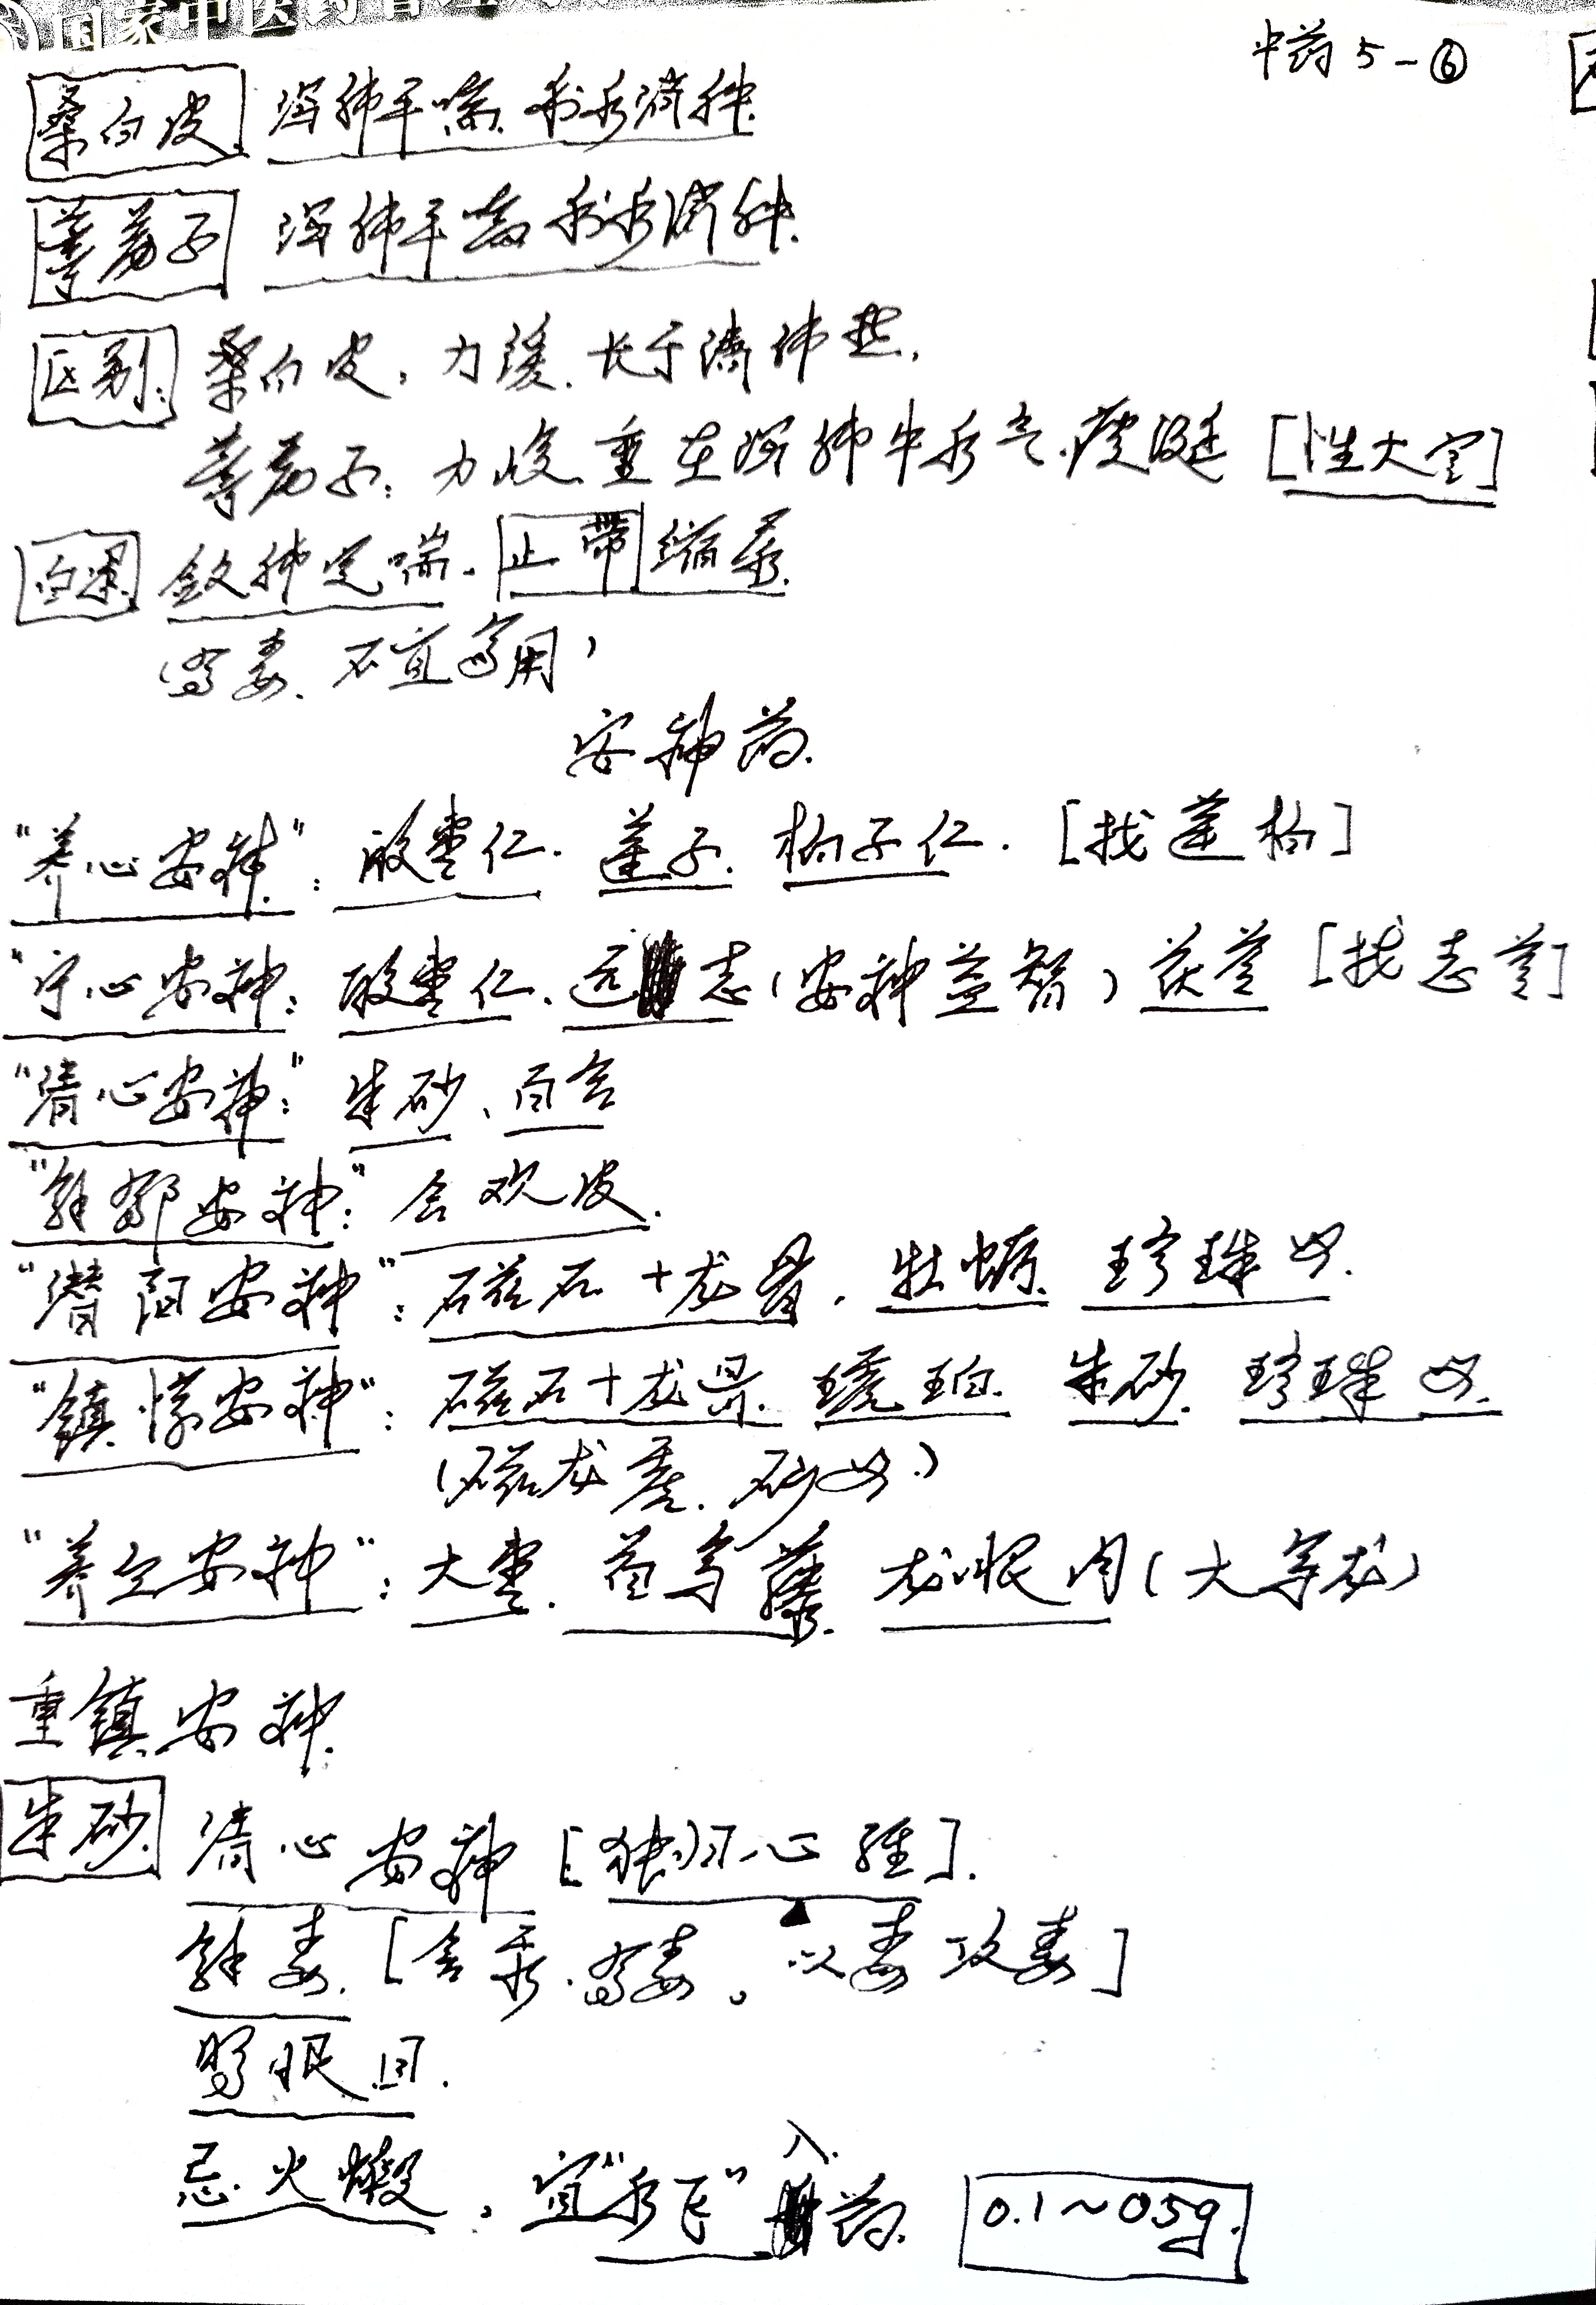 国家中医药管理
中药5-⑥
桑白皮 泻肺平喘.利水消肿.
葶苈子 泻肺平喘 利水消肿.
区别: 桑白皮:力缓.长于清肺热.
葶苈子:力峻.重在泻肺中水气.痰涎[性大寒]
白果 敛肺定喘.止带缩尿.
(有毒.不宜多用)
安神药.
"养心安神":酸枣仁.莲子.柏子仁.[找莲柏]
"宁心安神:酸枣仁.远志(安神益智)茯苓[找志苓]
"清心安神":朱砂、百合
"解郁安神":合欢皮.
"潜阳安神":磁石+龙骨.牡蛎.珍珠母.
"镇惊安神":磁石+龙骨.琥珀 朱砂.珍珠母.
(磁龙虎.砂母.)
"养血安神":大枣.首乌藤.龙眼肉(大乌龙)
重镇安神.
朱砂. 清心安神[独归心经].
解毒.[含汞.有毒。以毒攻毒]
明眼目.
忌火煅,宜"水飞"入药. 0.1~0.5g.